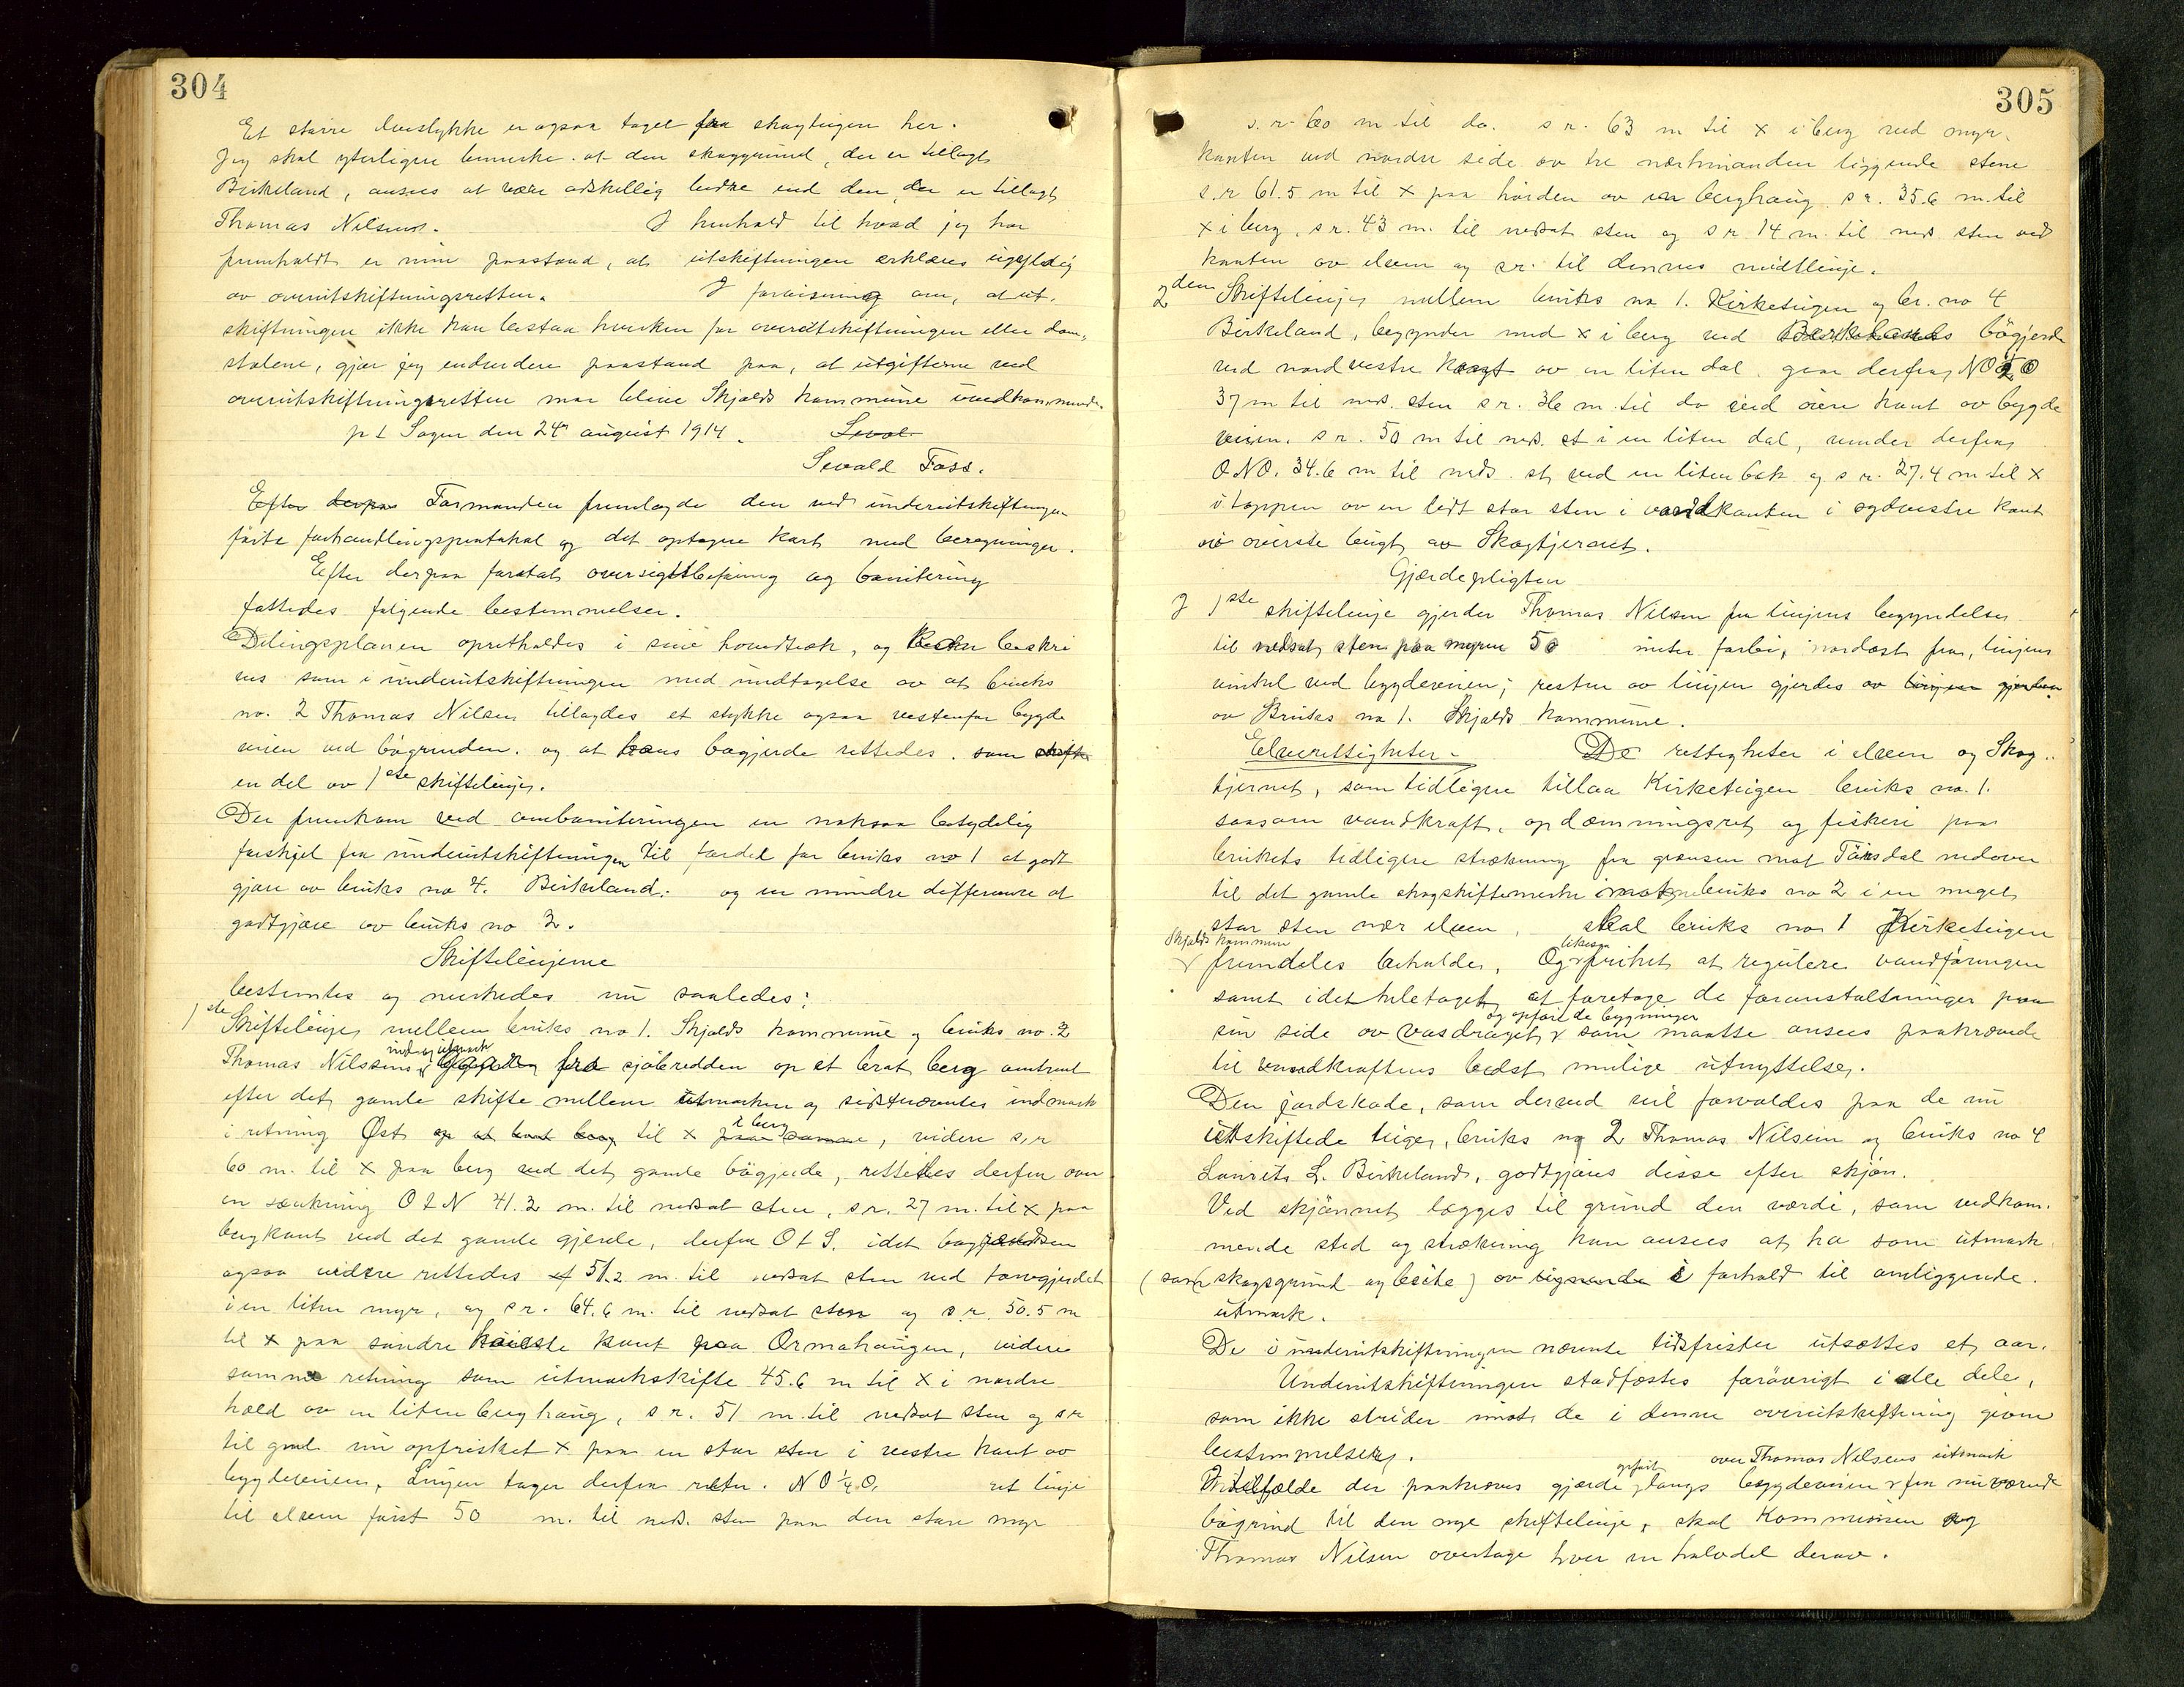 304
Et större elvestykke er ogsaa taget fra skogteigen her.
Jeg skal yterligere bemerke at den skoggrund, der er tillagt
Birkeland, ansees at være adskillig bedre end den, der er tillagt
Thomas Nilsen. I henhold til hvad jeg har
fremholdt er min paastand, at utskiftningen erklæres ugyldig
av overutskiftningsretten. I forvisning om, at ut-
skiftningen ikke kan bestaa hverken for overutskiftningen eller dom-
stolene, gjør jeg endvidere paastand paa, at utgifterne ved
overutskiftningsretten maa blive Skjolds kommune uvedkommende.
p t Sagen den 24de august 1914. Sevol
Sevald Foss.
Efter derpaa Formanden fremlagde den ved underutskiftningen
førte forhandlingsprotokol og det optagne kart med beregninger.
Efter derpaa foretat oversigtsbefaring og bonitering
fattedes følgende bestemmelser.
Delingsplanen opretholdes i sine hovedtræk, og beskri
ves som i underutskiftningen med undtagelse av at bruks
no. 2 Thomas Nilsen tillagdes et stykke ogsaa vestenfor bygde
veien ved bögrinden. og at hans bögjerde rettedes. som skifte
en del av 1ste skiftelinje.
Der fremkom ved omboniteringen en noksaa betydelig
forskjel fra underutskiftningen til fordel for bruks no 1 at godt
gjøre av bruks no 4. Birkeland. og en mindre differance at
godtgjøre av bruks no 2.
Skiftelinjerne
bestemtes og merkedes nu saaledes:
1ste Skiftelinje mellem bruks no 1. Skjolds kommune og bruks no. 2
ind og utmark
Thomas Nilsens fra sjöbredden op et brat berg omtrent
efter det gamle skifte mellem utmarken og sidstnævntes indmark
i berg
i retning Öst op et brat berg til x paa samme, videre s. r
60 m. til x paa berg ved det gamle bögjerde, rettedes derfra over
en sænkning O t N 41.2 m. til nedsat sten, s r. 27 m. til x paa
bergkant ved det gamle gjerde, derfra O t S. idet bögjerdet
ogsaa videre rettedes 51.2 m. til nedsat sten ved torvgjerdet
i en liten myr, og s r. 64.6 m. til nedsat sten og s. r. 50.5 m
til x paa söndre höieste kant paa Ormahaugen, videre
samme retning som utmarkskifte 45.6 m til x i nordre
hald av en liten berghaug, s r. 51 m. til nedsat sten og s r
til gml. nu opfrisket x paa en stor sten i vestre kant av
bygdeveien, Linjen tager derfra retn. N O ¼ O. ret linje
til elven först 50 m. til neds. sten paa den store myr
305
s. r. 60 m til do. s r. 63 m til x i berg ved myr-
kanten ved nordre side av tre nærhinanden liggende stene
s. r 61.5 m til x paa hörden av en berghaug s r. 35.6 m. til
x i berg, s r. 43 m. til nedsat sten og s r 14 m til neds sten ved
kanten av elven og s r. til dennes midtlinje.
2den Skiftelinje mellem bruks no 1. Kirketeigen og br. no 4
Birkeland, begynder med x i berg ved Birkelands bögjerde
ved nordvestre kant av en liten dal gaar derfra NO t O
37 m til neds. sten s r. 36 m til do ved övre kant av bygde
veien. s r. 50 m til neds. st i en liten dal, vender derfra
O N O. 34.6 m til neds. st. ved en liten bæk og s r. 27.4 m til x
i toppen av en lidt stor sten i vandkanten i sydvestre kant
av överste bugt av Skogtjernet.
Gjærdepligten
I 1ste skiftelinje gjerder Thomas Nilsen fra linjens begyndelse
til nedsat sten paa myren 50 meter forbi, nordost fra, linjens
vinkel ved bygdeveien; resten av linjen gjerdes av linjen gjerdes
av Bruks no 1. Skjolds kommune.
Elverettigheter. De rettigheter i elven og Skog-
tjernet, som tidligere tillaa Kirketeigen bruks no. 1.
saasom vandkraft, opdæmningsret og fiskeri paa
brukets tidligere strækning fra grænsen mot Tönsdal nedover
til det gamle skogskiftemerke mot bruks no 2 i en meget
stor sten nær elven, skal bruks no 1 Kirketeigen
Skjolds kommune likesaa
fremdeles beholde, Og frihet at regulere vandföringen
samt i det heletaget at foretage de foranstaltninger paa
og opföre de bygninger
sin side av vasdraget som maatte ansees paakrævede
til vandkraftens bedst mulige utnyttelse.
Den jordskade, som derved vil forvoldes paa de nu
utskiftede teige, bruks no 2 Thomas Nilsen og bruks no 4
Laurits L. Birkeland, godtgjöres disse efter skjön.
Ved skjönnet lægges til grund den værdi, som vedkom-
mende sted og strækning kan ansees at ha som utmark
(som skogsgrund og beite) av lignende i forhold til omliggende
utmark.
De i underutskiftningen nævnte tidsfrister utsættes et aar.
Underutskiftningen stadfæstes forövrigt i alle dele,
som ikke strider imot de i denne overutskiftning givne
bestemmelser. over Thomas Nilsens utmark
opfört
I tilfælde der paakræves gjærde langs bygdeveien fra nuværende
bögrind til den nye skiftelinje, skal Kommunen og
Thomas Nilsen overtage hver en halvdel derav.